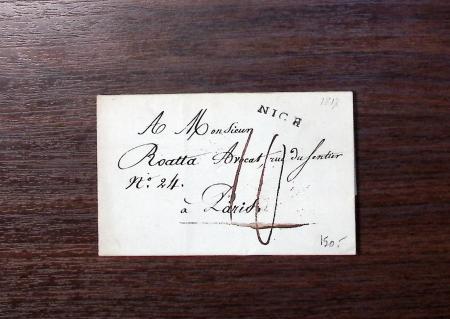 1817
NICE
A Monsieur
Roatta Avocat, rue du Sentier
N.° 24.
à Paris
150.-